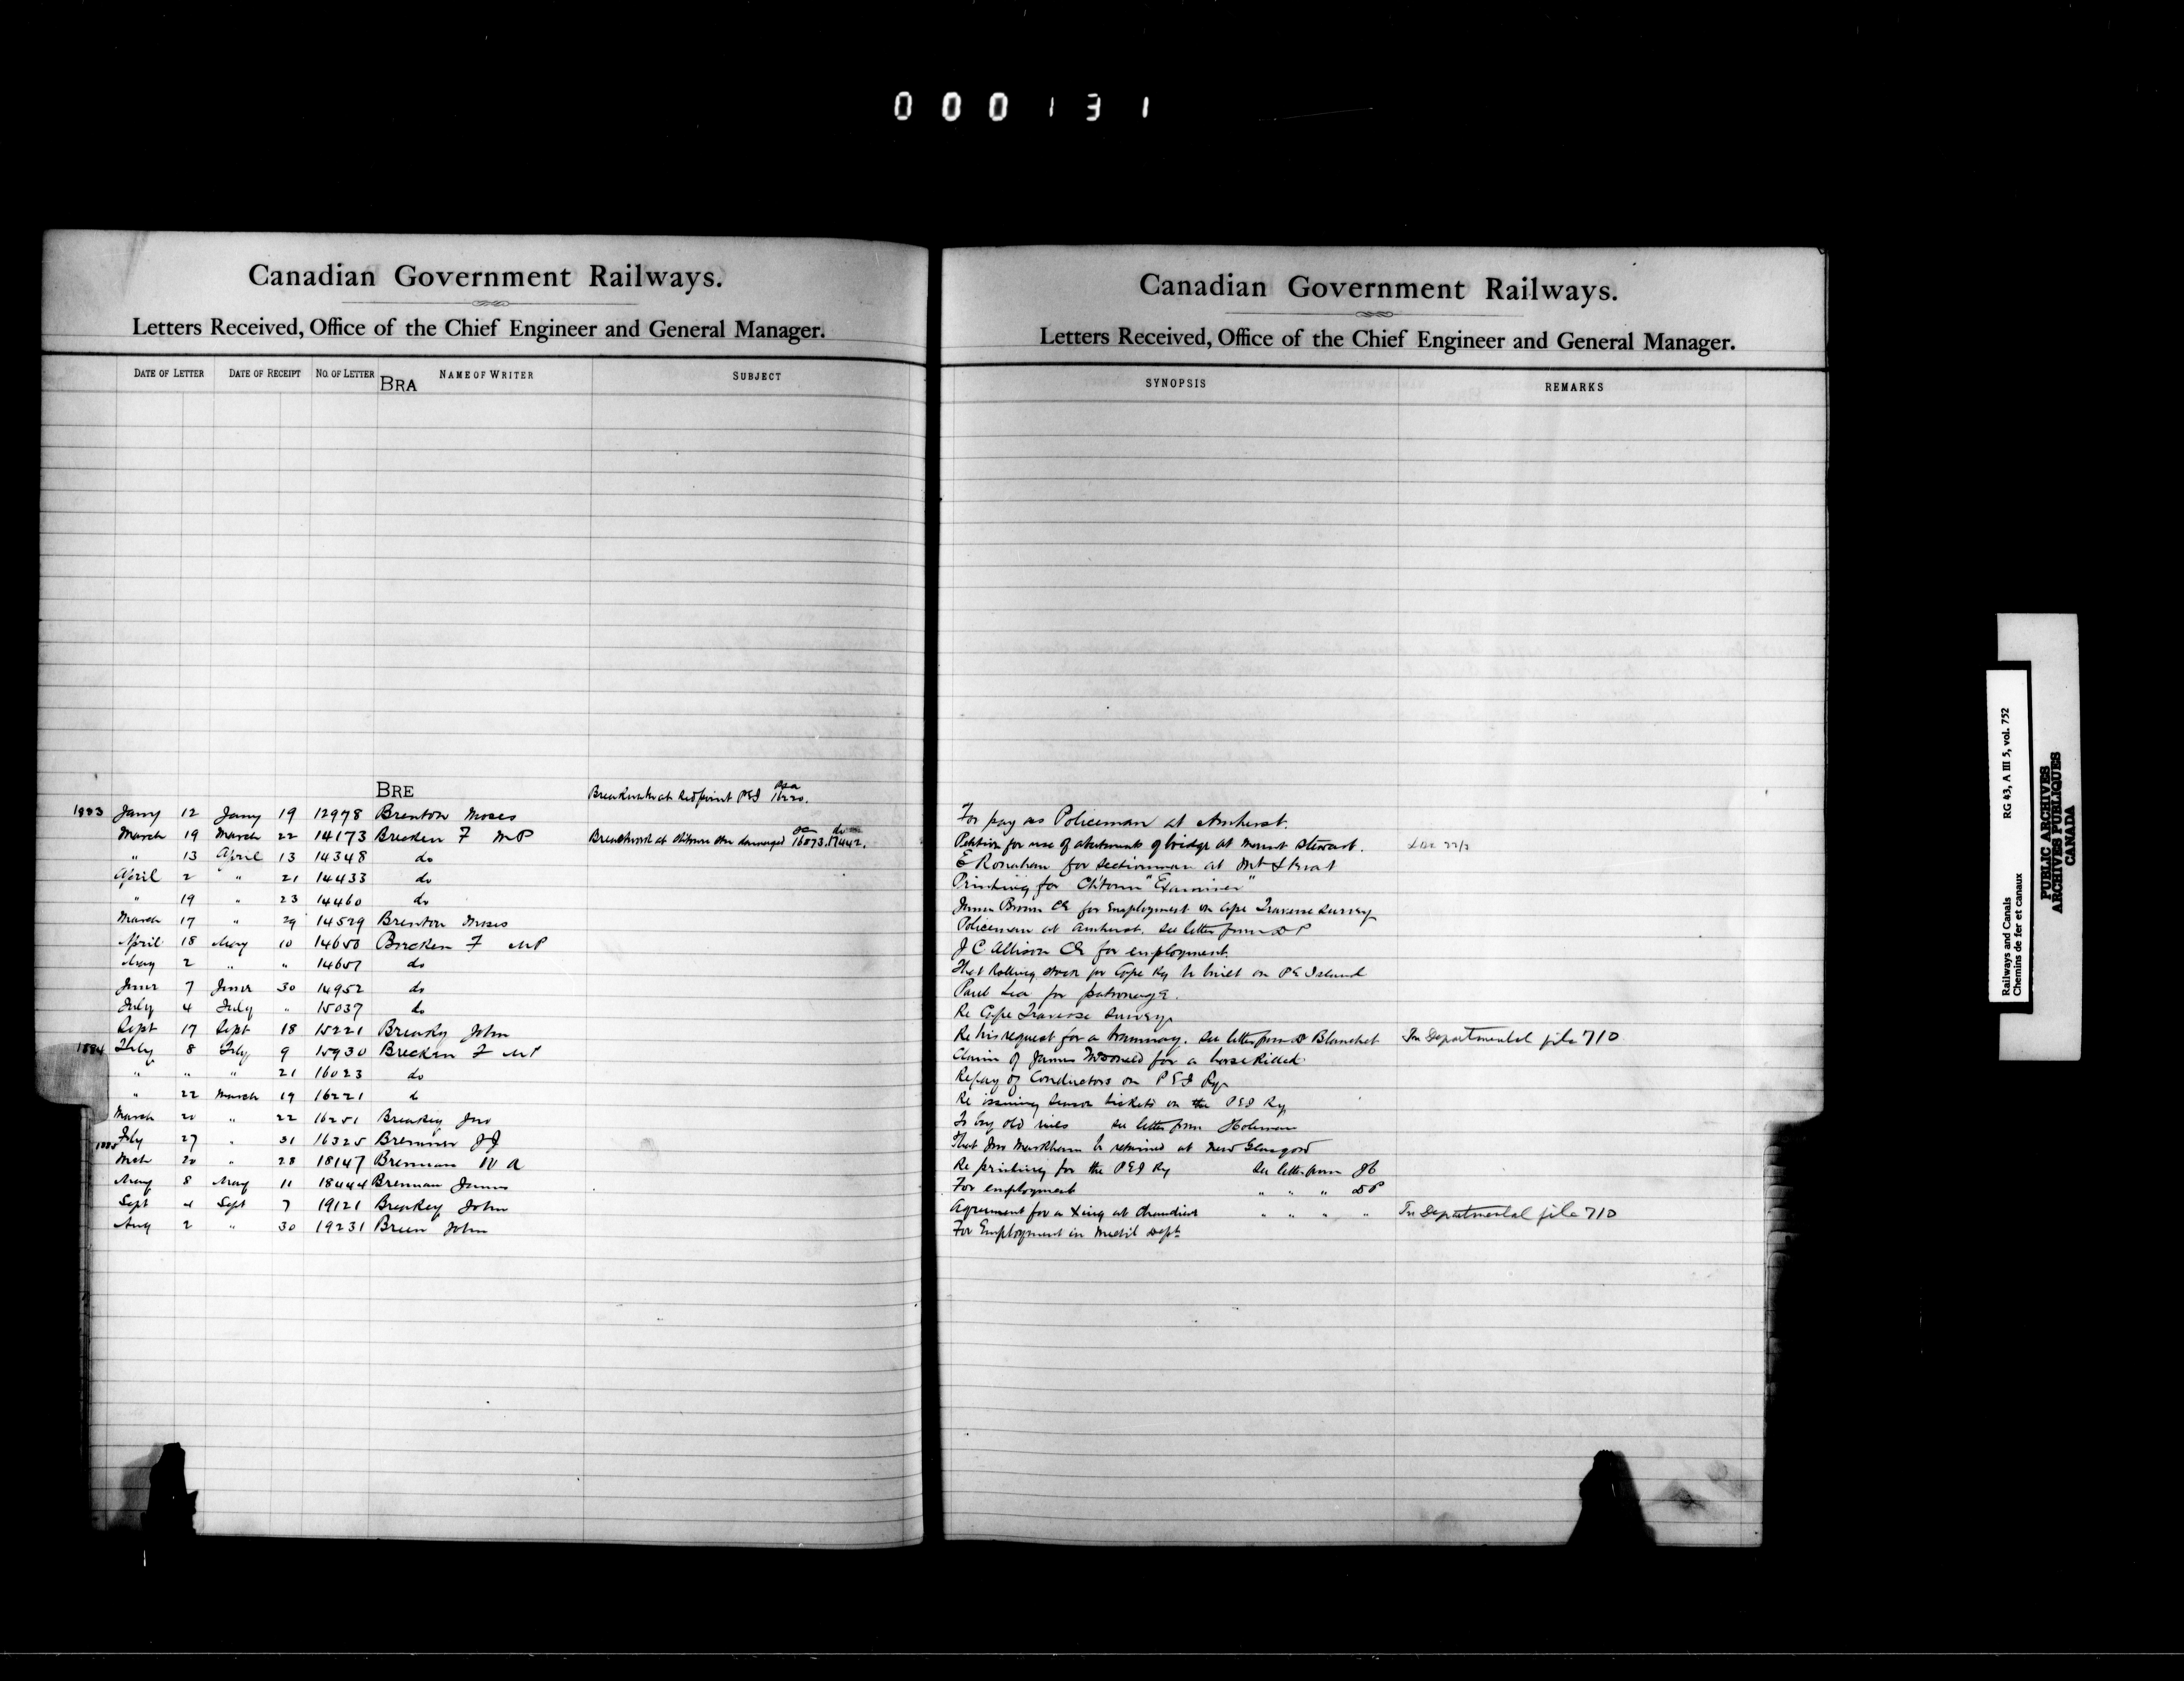 000131
Canadian Government Railways.
Letters Received, Office of the Chief Engineer and General Manager.
DATE OF LETTER DATE OF RECEIPT NO. OF LETTER NAME OF WRITER SUBJECT
BRA
BRE
1883 Jany 12 Jany 19 12978 Brenton Moses
March 19 March 22 14173 Brecken F MP
" 13 April 13 14348 do
April 2 " 21 14433 do
" 19 " 23 14460 do
March 17 " 29 14529 Brenton Moses
April 18 May 10 14650 Brecken F MP
May 2 " " 14657 do
June 7 June 30 14952 do
July 4 July " 15037 do
Sept 17 Sept 18 15221 Breaky John
1884 Feby 8 Feby 9 15930 Brecken F MP
" " " 21 16023 do
" 22 March 19 16221 do
March 20 " 22 16251 Breakey Jno
Feby 27 " 31 16325 Bremner JJ
1885 Mch 20 " 28 18147 Brennan W A
May 8 May 11 18444 Brennan James
Sept 4 Sept 7 19121 Breakey John
Aug 2 " 30 19231 Breen John
Canadian Government Railways.
Letters Received, Office of the Chief Engineer and General Manager.
SYNOPSIS REMARKS
For pay as Policeman at Amherst.
Petition for use of abutments of bridge at Mount Stewart.
E Ronahan for sectionman at Mt Stewart
Printing for Ch'town "Examiner"
James Brown CE for Employment on Cape Traverse Survey
Policeman at Amherst. See letter from DP
J C Allison CE for employment.
That Rolling stock for Cape Ry be built on PE Island
Paul Lea for patronage.
Re Cape Traverse Survey
Re his request for a tramway. See letter from Dr Blanchet In Departmental file 710
Claim of James McDonald for a horse killed
Re pay of Conductors on PEI Ry
Re issuing season tickets on the PEI Ry
To buy old rails See letter from Holman
That Jno Markham be retained at New Glasgow
Re printing for the PEI Ry See letter from JC
For employment " " " DP
Agreement for a Xing at Chaudiere " " " " In Departmental file 710
For Employment in Mechl Dept
Railways and Canals RG 43, A III 5, vol. 752
Chemins de fer et canaux
PUBLIC ARCHIVES
ARCHIVES PUBLIQUES
CANADA